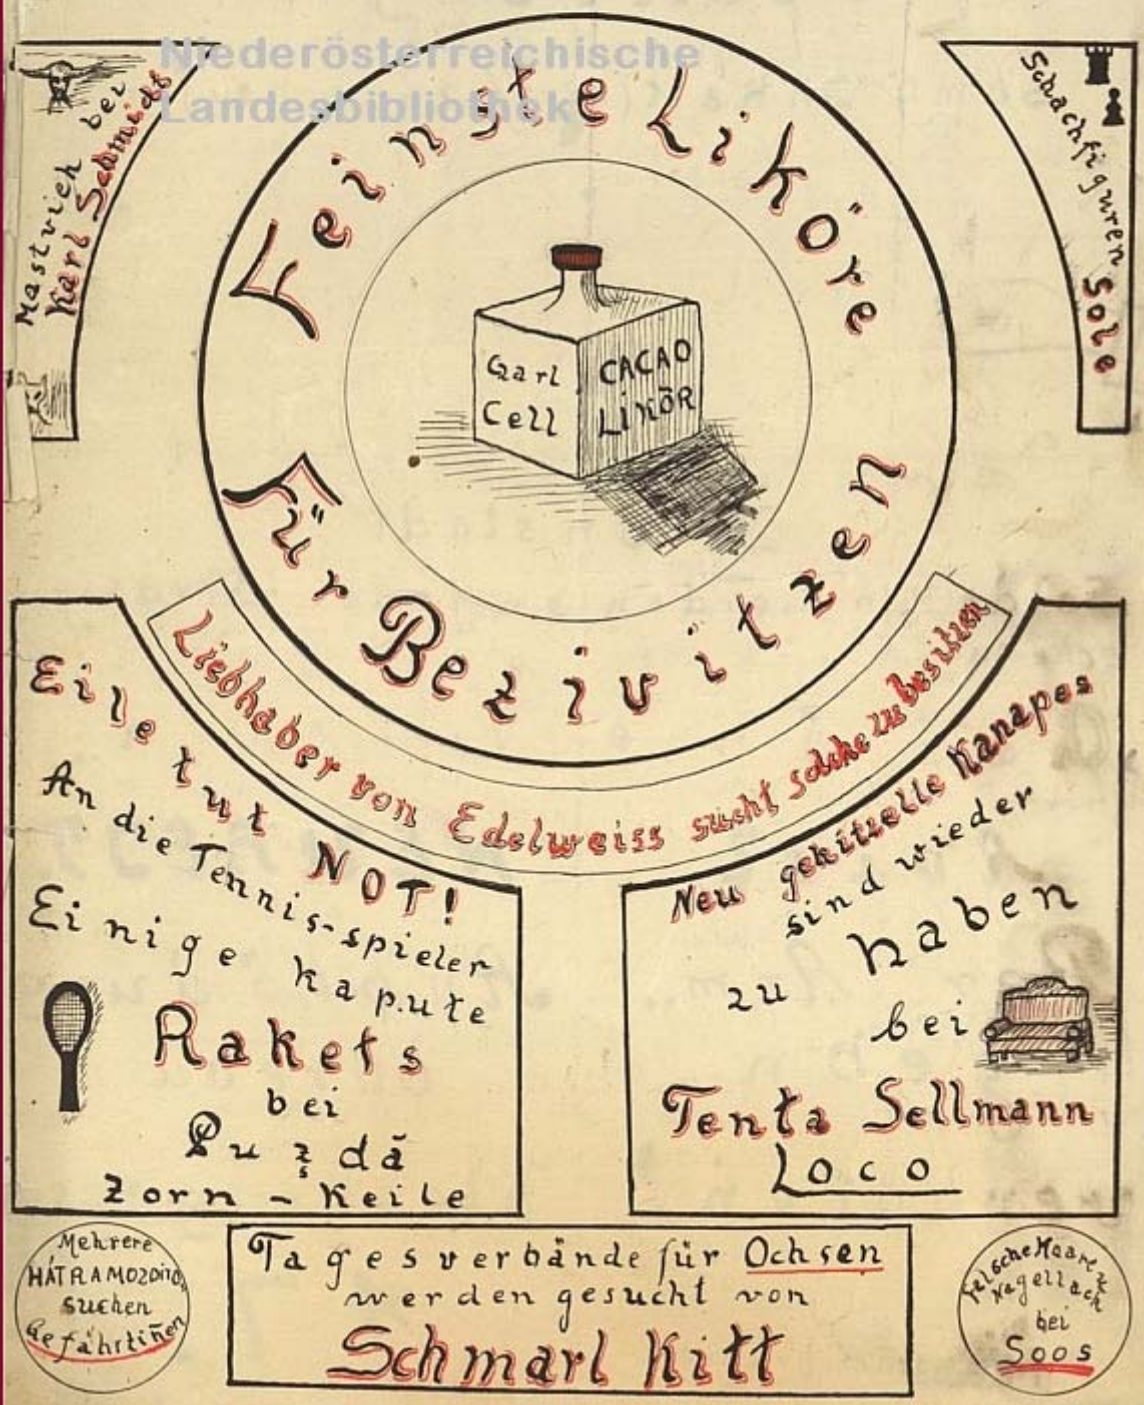 Niederösterreichische
Landesbibliothek
Mastvieh bei
Karl Schmidt
Feinste Liköre
Schachfiguren Sole
Garl
Cell
CACAO
LIKÖR
Für Bezivitzen
Liebhaber von Edelweiss sucht solche zu besitzen
Eile tut NOT!
An die Tennis-spieler
Einige kapute
Rakets
bei
Puzdă
Zorn - Keile
Neu gekitzelle Kanapes
sind wieder
zu haben
bei
Tenta Sellmann
Loco
Mehrere
suchen
Gefährtinen
Tagesverbände für Ochsen
werden gesucht von
Schmarl Kitt
Felsche Haare u
Nagellack
bei
Soos